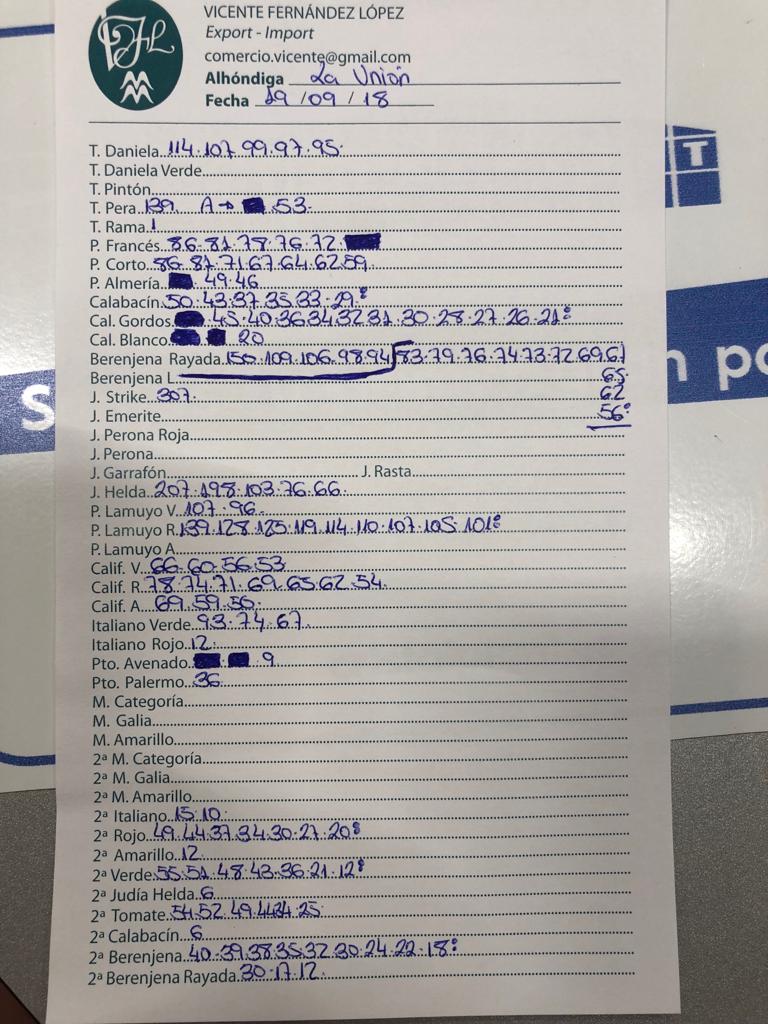 VICENTE FERNÁNDEZ LÓPEZ
Export - Import
comercio.vicente@gmail.com
Alhóndiga La Unión
Fecha 19 / 09 / 18
T. Daniela 114.107.99.97.95
T. Daniela Verde
T. Pintón
T. Pera 139. A→ 53
T. Rama 1
P. Francés 86.81.78.76.72
P. Corto 86.81.71.67.64.62.59
P. Almería 49.46
Calabacín 50.43.37.35.33.29
Cal. Gordos 45.40.36.34.32.31.30.28.27.26.21
Cal. Blanco 20
Berenjena Rayada 155.109.106.98.94 83.79.76.74.73.72.69.67
Berenjena L 65
J. Strike 307. 62
J. Emerite 56
J. Perona Roja
J. Perona
J. Garrafón J. Rasta
J. Helda 207.198.103.76.66
P. Lamuyo V. 107.96
P. Lamuyo R. 139.128.125.119.114.110.107.105.101
P. Lamuyo A
Calif. V. 66.60.56.53
Calif. R. 78.74.71.69.65.62.54
Calif. A. 69.59.56
Italiano Verde 93.74.67
Italiano Rojo 12
Pto. Avenado 9
Pto. Palermo 36
M. Categoría
M. Galia
M. Amarillo
2ª M. Categoría
2ª M. Galia
2ª M. Amarillo
2ª Italiano 15.10
2ª Rojo 49.44.37.34.30.27.20
2ª Amarillo 12
2ª Verde 55.51.48.43.36.21.12
2ª Judía Helda 6
2ª Tomate 54.52.49.44.34.25
2ª Calabacín 6
2ª Berenjena 40.39.38.35.32.30.24.22.18
2ª Berenjena Rayada 30.17.12